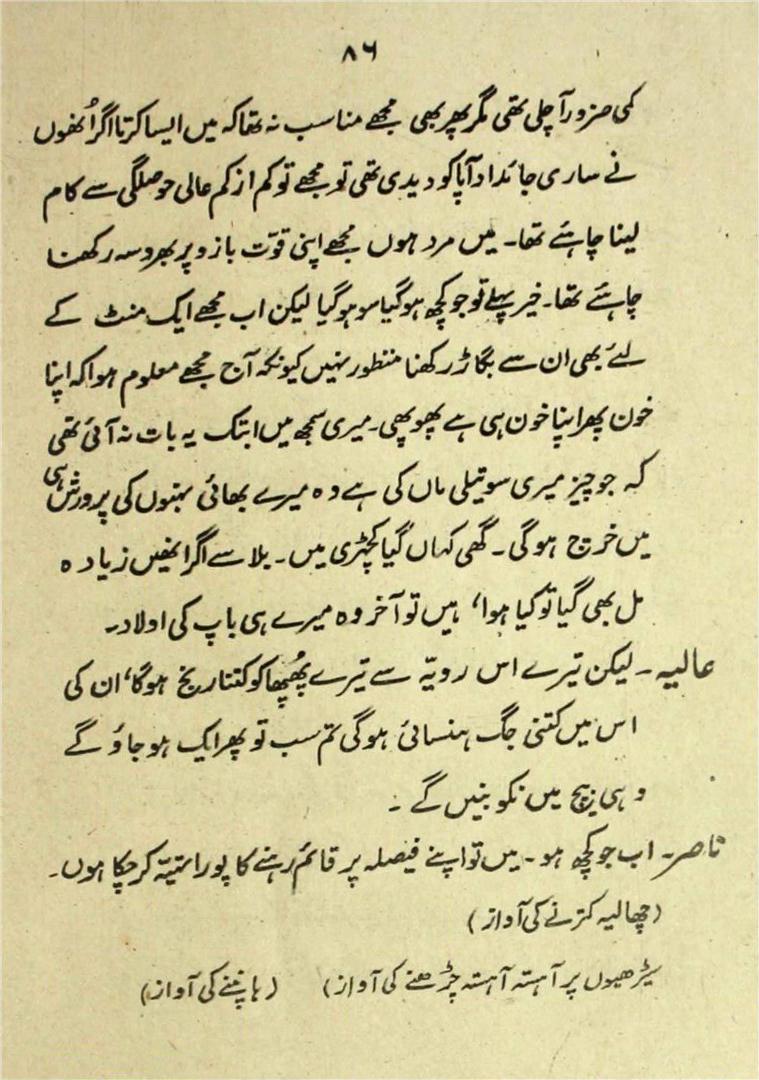 ۸۶
کمی ضرور آ چلی تھی مگر پھر بھی مجھے مناسب نہ تھا کہ میں ایسا کرتا اگر اُنھوں
نے ساری جائداد آپا کو دیدی تھی تو مجھے تو کم از کم عالی حوصلگی سے کام
لینا چاہئے تھا۔ میں مرد ہوں مجھے اپنی قوّت بازو پر بھروسہ رکھنا
چاہئے تھا۔ خیر پہلے تو جو کچھ ہو گیا سو ہو گیا لیکن اب مجھے ایک منٹ کے
لئے بھی ان سے بگاڑ رکھنا منظور نہیں کیونکہ آج مجھے معلوم ہوا کہ اپنا
خون پھر اپنا خون ہی ہے پھوپھی۔ میری سمجھ میں ابتک یہ بات نہ آئی تھی
کہ جو چیز میری سوتیلی ماں کی ہے وہ میرے بھائی بہنوں کی پرورش ہی
میں خرچ ہوگی۔ گھی کہاں گیا کھچڑی میں۔ بلا سے اگر انھیں زیادہ
مل بھی گیا تو کیا ہوا، ہیں تو آخر وہ میرے ہی باپ کی اولاد۔
عالیہ۔ لیکن تیرے اس رویّہ سے تیرے پُھپھا کو کتنا رنج ہوگا، ان کی
اس میں کتنی جگ ہنسائی ہوگی تم سب تو پھر ایک ہو جاؤ گے
وہی بیچ میں نکو بنیں گے۔
ناصر۔ اب جو کچھ ہو۔ میں تو اپنے فیصلہ پر قائم رہنے کا پورا تہیّہ کر چکا ہوں۔
(چھالیہ کترنے کی آواز)
سیڑھیوں پر آہستہ آہستہ چڑھنے کی آواز) (ہانپنے کی آواز)